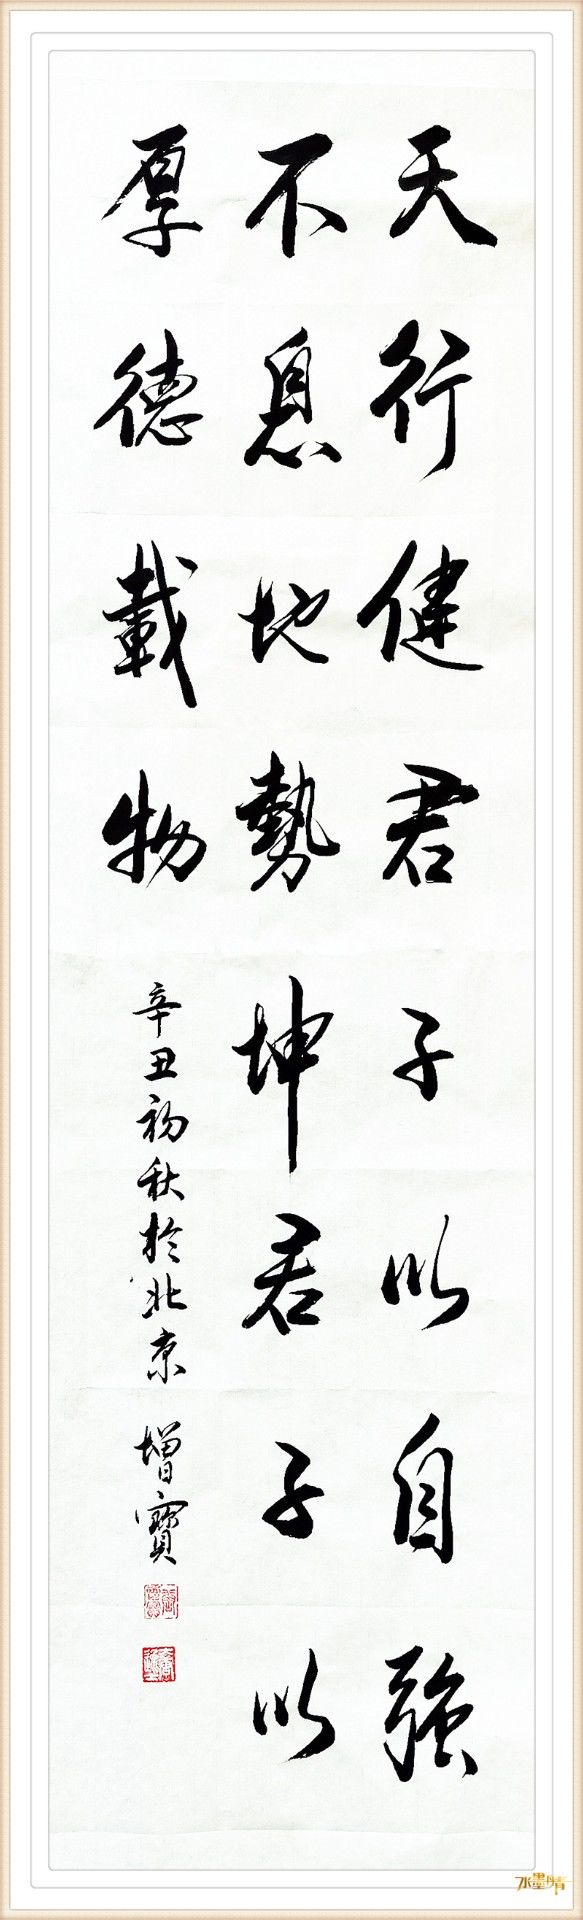 天行健君子以自強
不息地勢坤君子以
厚德載物
辛丑初秋於北京 增寶
水墨丹青